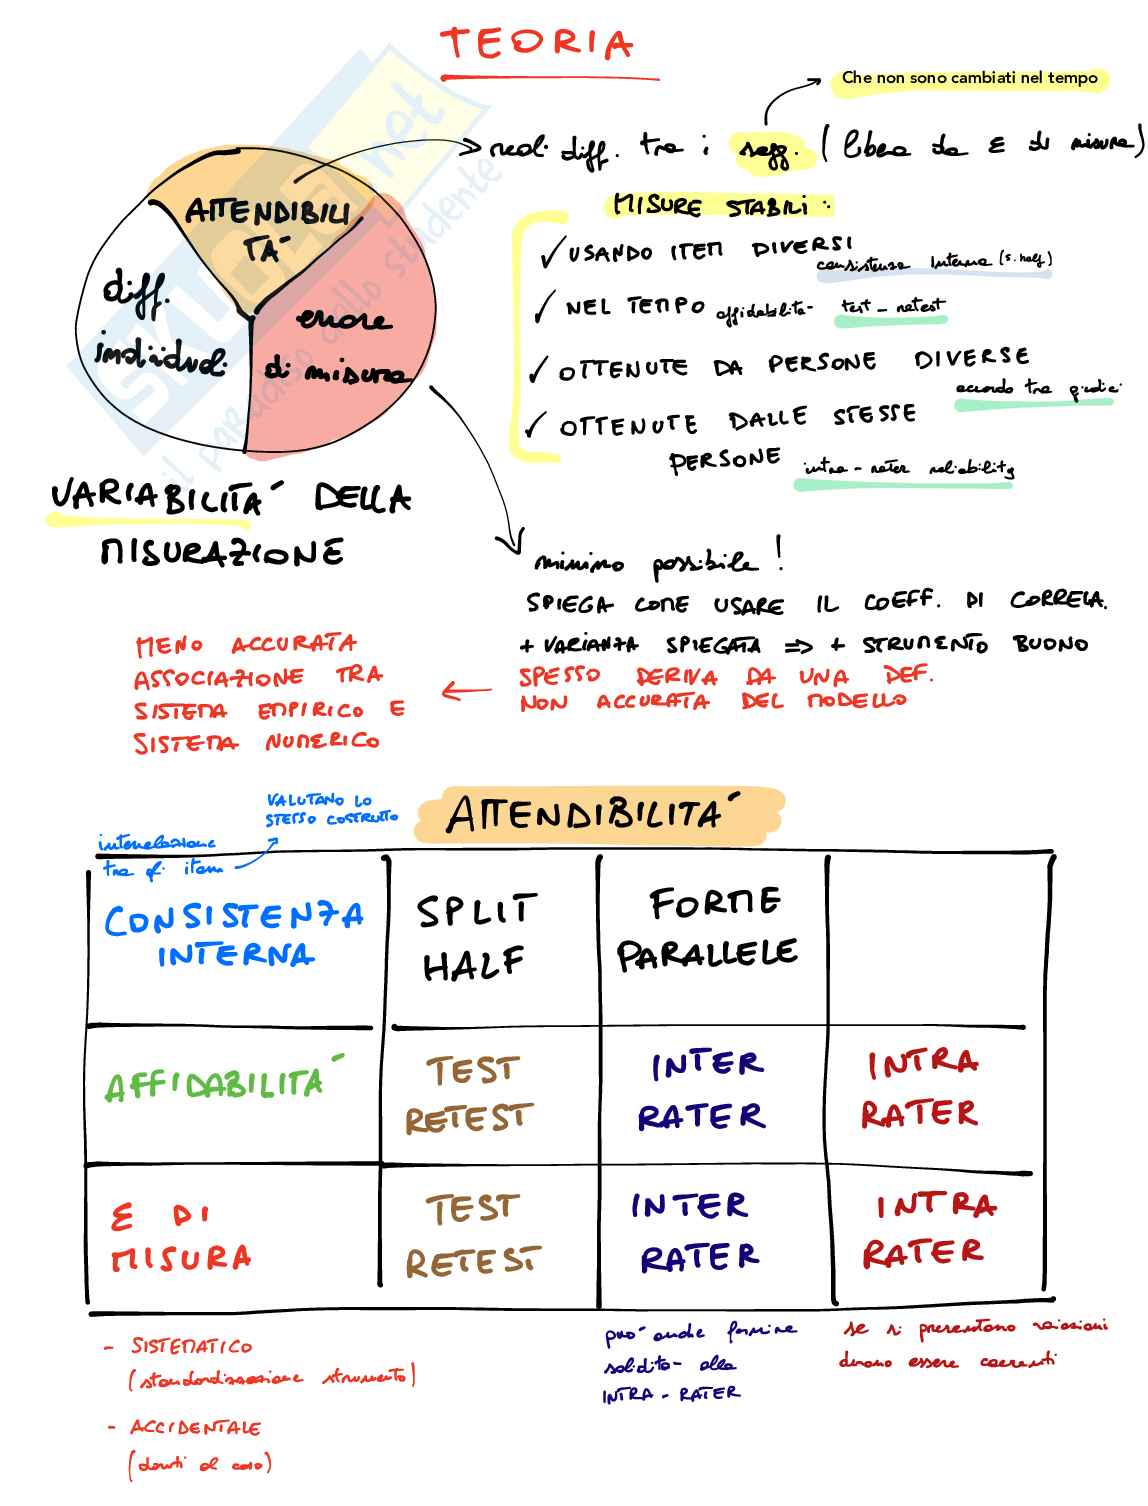 TEORIA
Che non sono cambiati nel tempo
reali diff. tra i sogg. (libera da E di misura)
MISURE STABILI:
✓ USANDO ITEM DIVERSI
consistenza interna (s. half)
✓ NEL TEMPO affidabilità - test - retest
✓ OTTENUTE DA PERSONE DIVERSE
accordo tra giudici
✓ OTTENUTE DALLE STESSE
PERSONE intra - rater reliability
ATTENDIBILI
TÀ
diff.
individuali
errore
di misura
SKUOLA.net
il paradiso dello studente
VARIABILITÀ DELLA
MISURAZIONE
minimo possibile!
SPIEGA COME USARE IL COEFF. DI CORRELA.
+ VARIANZA SPIEGATA => + STRUMENTO BUONO
SPESSO DERIVA DA UNA DEF.
NON ACCURATA DEL MODELLO
MENO ACCURATA
ASSOCIAZIONE TRA
SISTEMA EMPIRICO E
SISTEMA NUMERICO
ATTENDIBILITÀ
VALUTANO LO
STESSO COSTRUTTO
interrelazione
tra gli item
CONSISTENZA
INTERNA
SPLIT
HALF
FORME
PARALLELE
AFFIDABILITÀ
TEST
RETEST
INTER
RATER
INTRA
RATER
E DI
MISURA
TEST
RETEST
INTER
RATER
INTRA
RATER
- SISTEMATICO
(standardizzazione strumento)
- ACCIDENTALE
(dovuti al caso)
può anche fornire
solidità alla
INTRA - RATER
se si presentano variazioni
devono essere coerenti